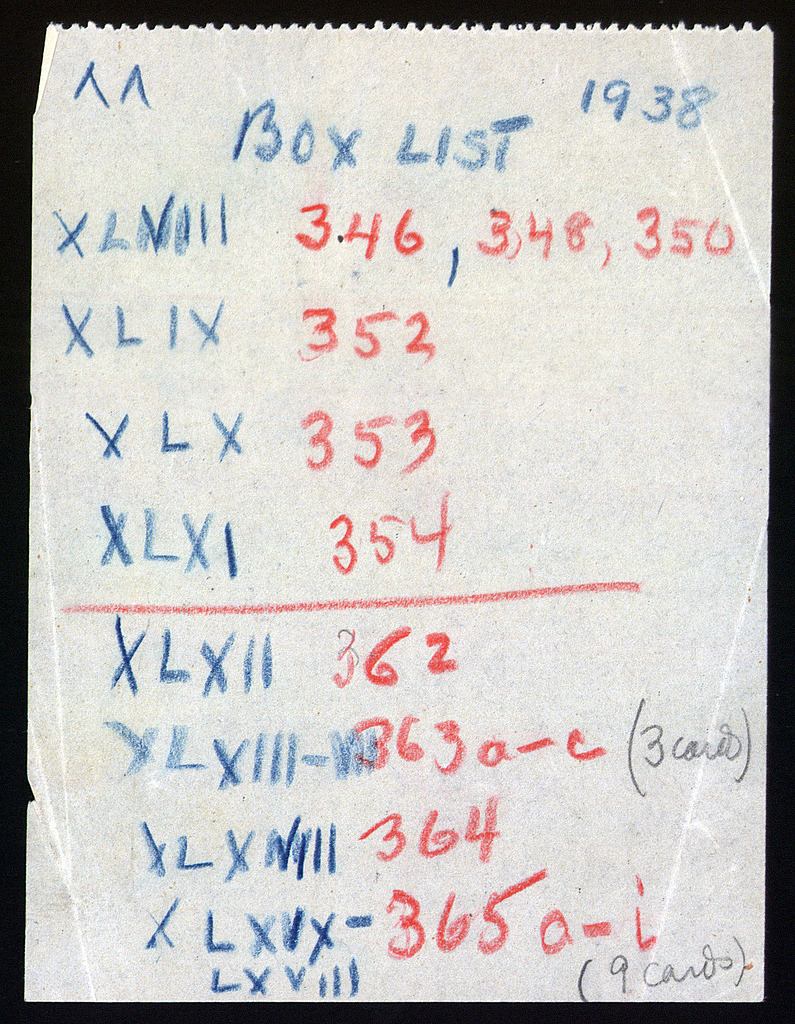 1938
BOX LIST
XLVIII 346, 348, 350
XLIX 352
XLX 353
XLXI 354
XLXII 362
XLXIII- 363a-c (3 cards)
XLXVIII 364
XLXVX- 365a-i
LXVIII (9 cards)